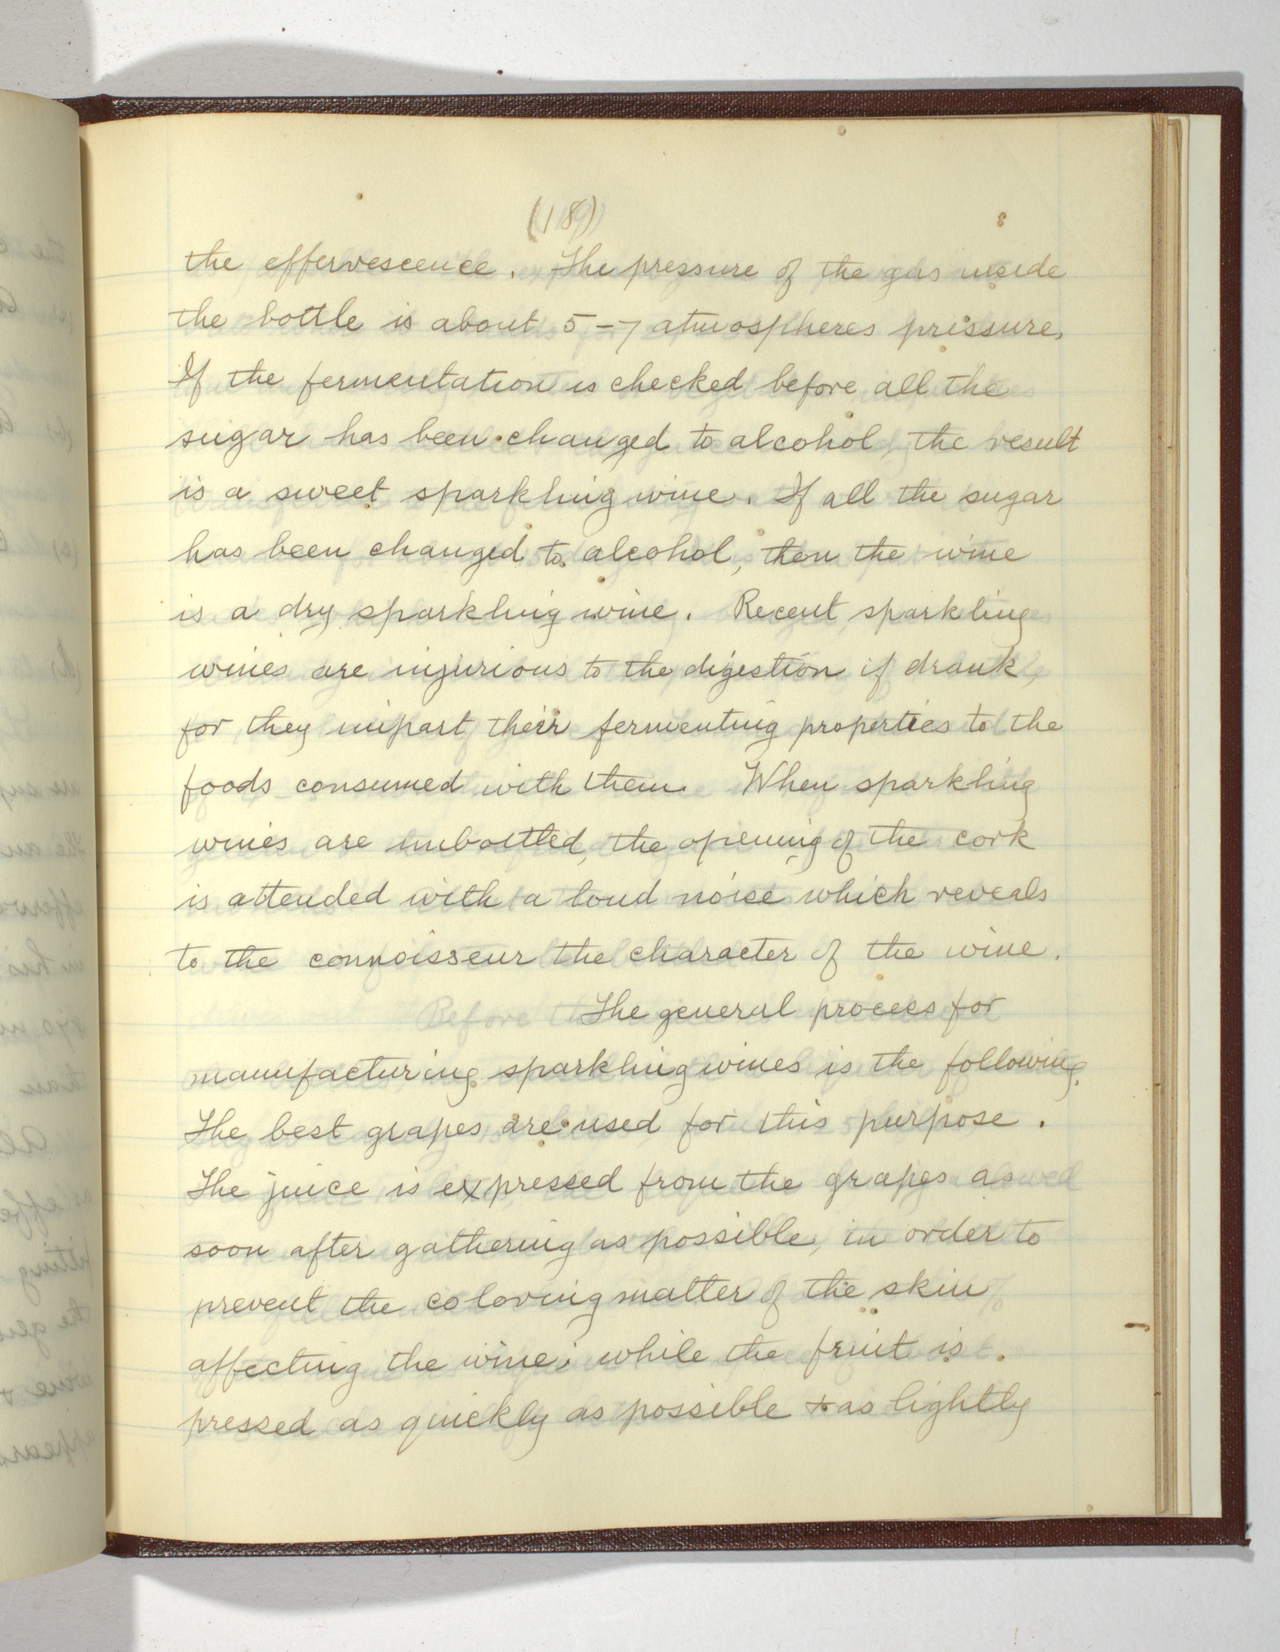 (18)
the effervescence. The pressure of the gas inside
the bottle is about 5-7 atmospheres pressure.
If the fermentation is checked before all the
sugar has been changed to alcohol, the result
is a sweet sparkling wine. If all the sugar
has been changed to alcohol, then the wine
is a dry sparkling wine. Recent sparkling
wines are injurious to the digestion if drank,
for they impart their fermenting properties to the
foods consumed with them. When sparkling
wines are unbottled, the opening of the cork
is attended with a loud noise which reveals
to the connoisseur the character of the wine.
The general process for
manufacturing sparkling wines is the following.
The best grapes are used for this purpose.
The juice is expressed from the grapes as
soon after gathering as possible, in order to
prevent the coloring matter of the skin
affecting the wine; while the fruit is
pressed as quickly as possible & as lightly